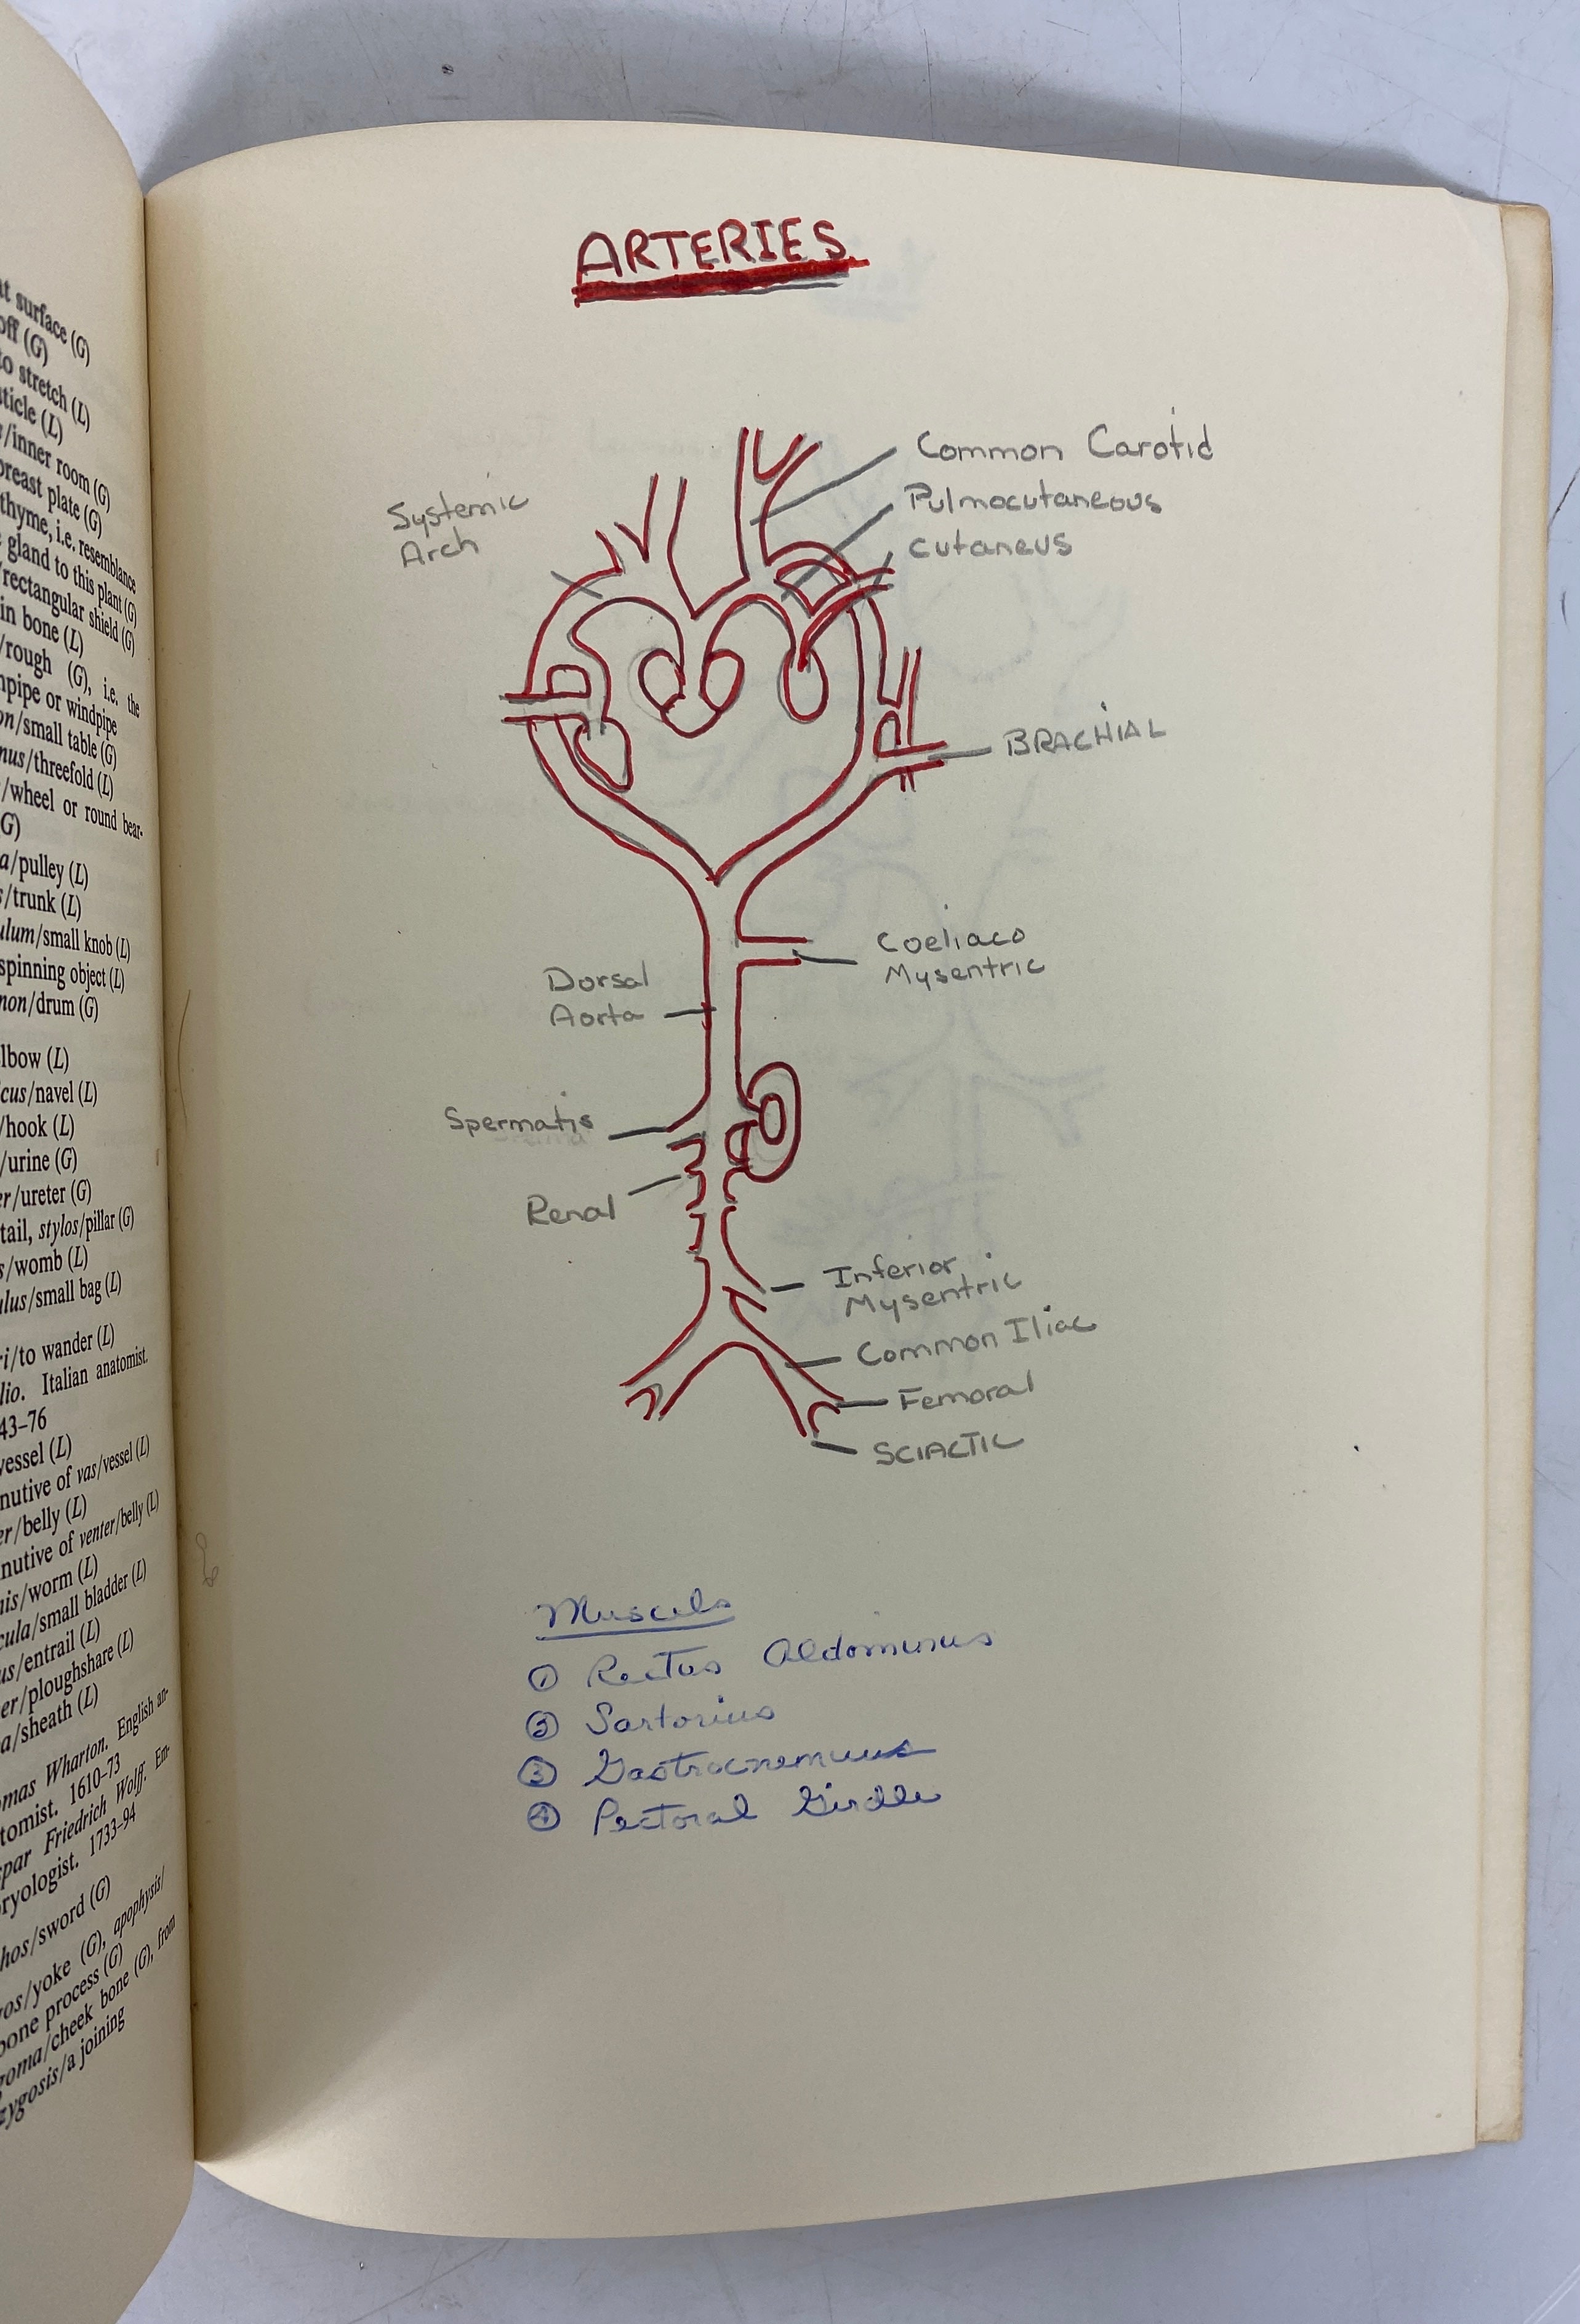 at surface (G)
off (G)
to stretch (L)
sticle (L)
s/inner room (G)
breast plate (G)
thyme, i.e. resemblance
gland to this plant (G)
/rectangular shield (G)
in bone (L)
/rough (G), i.e. the
npipe or windpipe
on/small table (G)
mus/threefold (L)
/wheel or round bear-
G)
a/pulley (L)
s/trunk (L)
ulum/small knob (L)
spinning object (L)
non/drum (G)
lbow (L)
cus/navel (L)
/hook (L)
/urine (G)
er/ureter (G)
tail, stylos/pillar (G)
s/womb (L)
ulus/small bag (L)
ri/to wander (L)
lio. Italian anatomist.
43–76
vessel (L)
nutive of vas/vessel (L)
er/belly (L)
nutive of venter/belly (L)
nis/worm (L)
cula/small bladder (L)
us/entrail (L)
er/ploughshare (L)
a/sheath (L)
omas Wharton. English an-
tomist. 1610–73
spar Friedrich Wolff. Em-
ryologist. 1733–94
hos/sword (G)
gos/yoke (G), apophysis/
bone process (G)
goma/cheek bone (G), from
zygosis/a joining
ARTERIES
Common Carotid
Pulmocutaneous
Cutaneus
Systemic
Arch
BRACHIAL
Coeliaco
Mysentric
Dorsal
Aorta
Spermatis
Renal
Inferior
Mysentric
Common Iliac
Femoral
SCIACTIC
Muscels
① Rectus Aldominus
② Sartorius
③ Gastrocnemuus
④ Pectoral Girdle